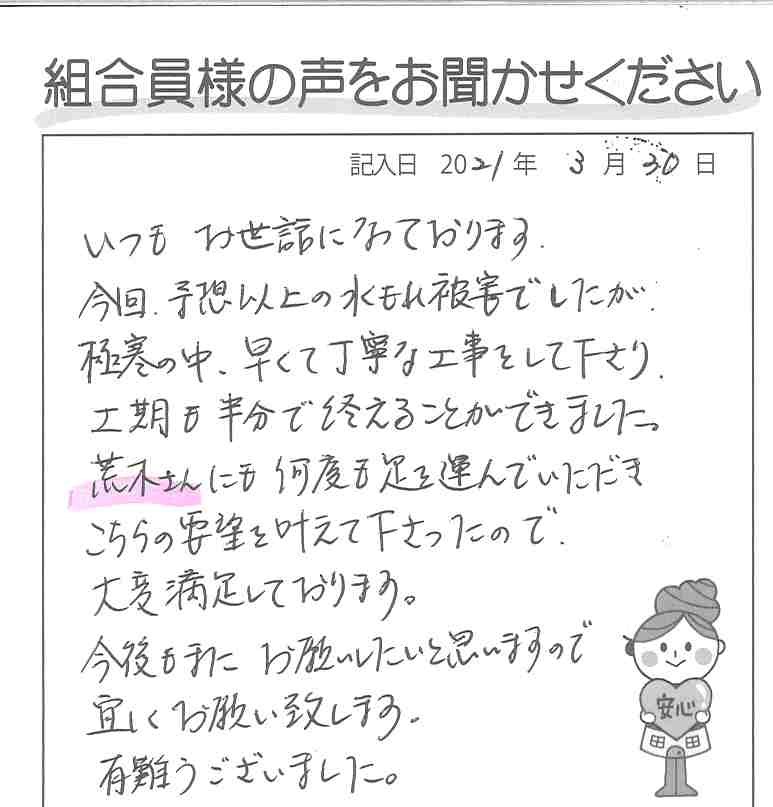 組合員様の声をお聞かせください
記入日 2021年 3月 30日
いつも お世話になっております.
今回.予想以上の水もれ被害でしたが.
極寒の中、早くて丁寧な工事をして下さり.
工期も半分で終えることができました。
荒木さんにも何度も足を運んでいただき
こちらの要望を叶えて下さったので.
大変満足しております。
今後もまた お願いしたいと思いますので
宜しくお願い致します.
有難うございました。
安心